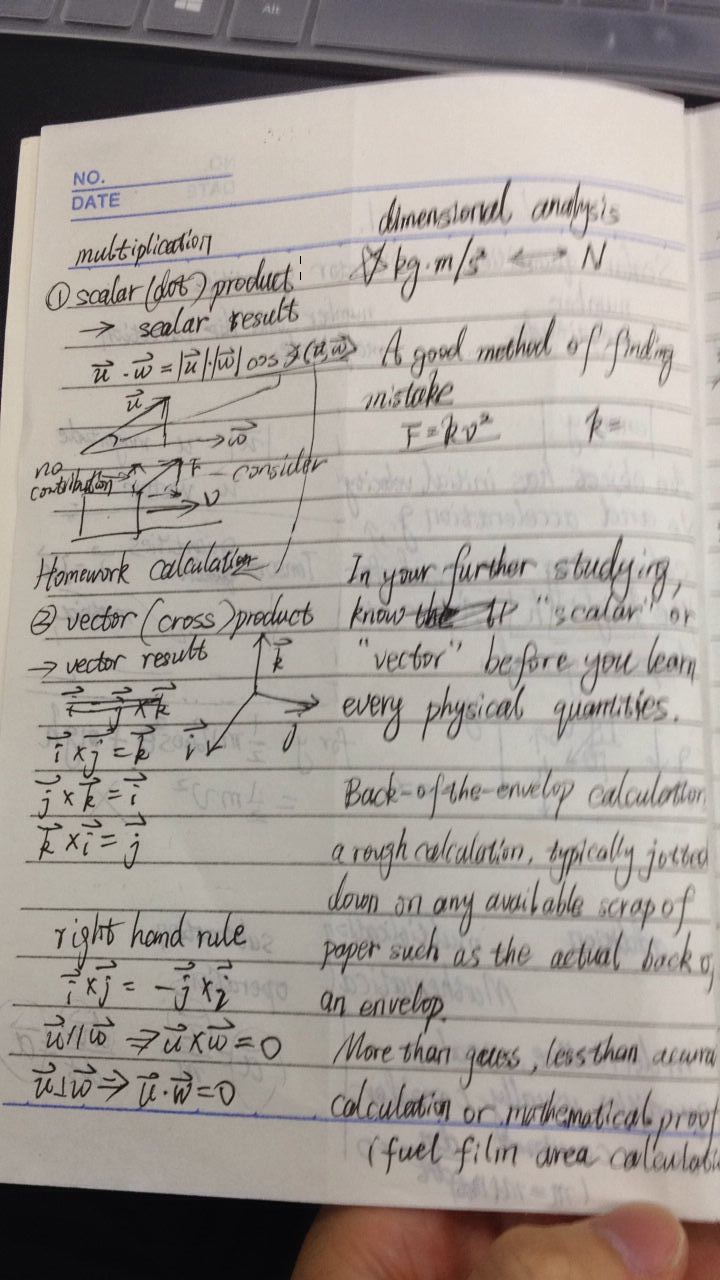 Alt
NO.
DATE
multiplication
① scalar (dot) product
→ scalar result
u⃗ · w⃗ = |u⃗|·|w⃗| cos ∢(u⃗, w⃗)
u⃗
w⃗
no
contribution
F
consider
v
Homework calculation
② vector (cross) product
→ vector result
k⃗
j
i⃗
i⃗ × j⃗ = k⃗
j⃗ × k⃗ = i⃗
k⃗ × i⃗ = j⃗
right hand rule
i⃗ × j⃗ = -j⃗ × i⃗
u⃗ // w⃗ ⇒ u⃗ × w⃗ = 0
u⃗ ⊥ w⃗ ⇒ u⃗ · w⃗ = 0
dimensional analysis
kg·m/s² ↔ N
A good method of finding
mistake
F = kv²   k =
In your further studying,
know "scalar" or
"vector" before you learn
every physical quantities.
Back-of-the-envelop calculation
a rough calculation, typically jotted
down on any available scrap of
paper such as the actual back of
an envelop.
More than guess, less than accura
calculation or mathematical proof
(fuel film area calculati